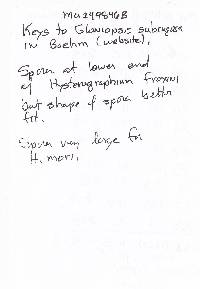 MU249846B
Keys to Gloniopsis subrugosa
in Boehm (website).
Spores at lower end
of Hysterographium fraxini
but shape of spore better
fit.
Spores very large for
H. mori.